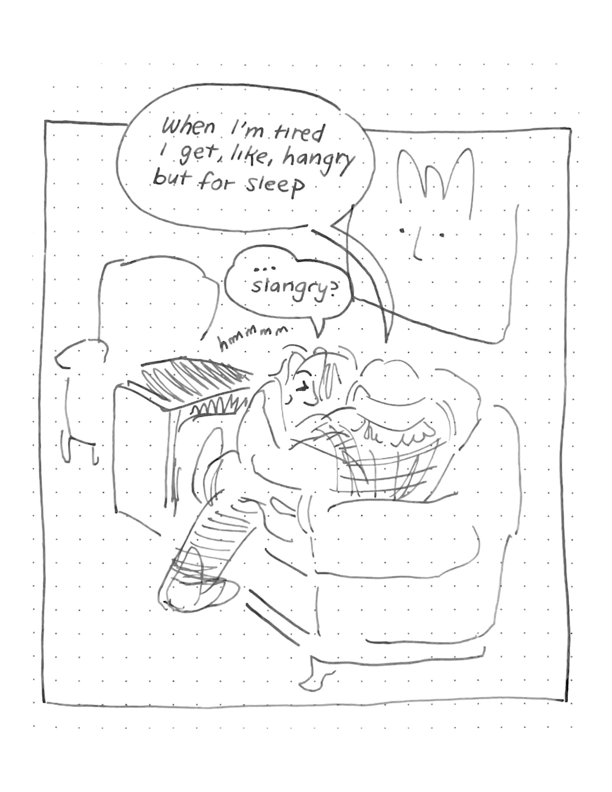 When I'm tired
I get, like, hangry
but for sleep
...
slangry?
hmmmmm